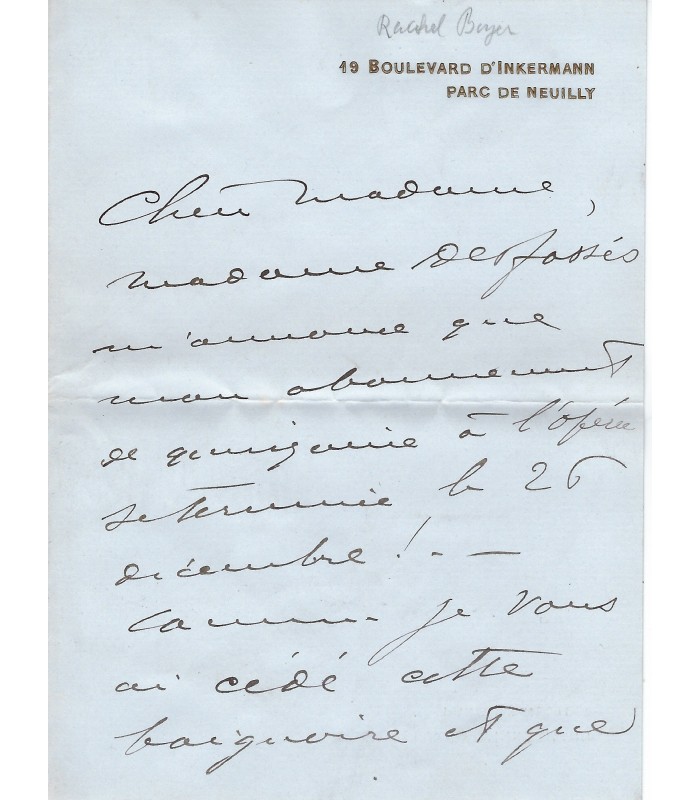 Rachel Boyer
19 BOULEVARD D'INKERMANN
PARC DE NEUILLY
Chère madame,
madame Desfossés
m'annonce que
mon abonnement
de quinzaine à l'opéra
se termine le 26
décembre ! . —
Comme je vous
ai cédé cette
baignoire et que